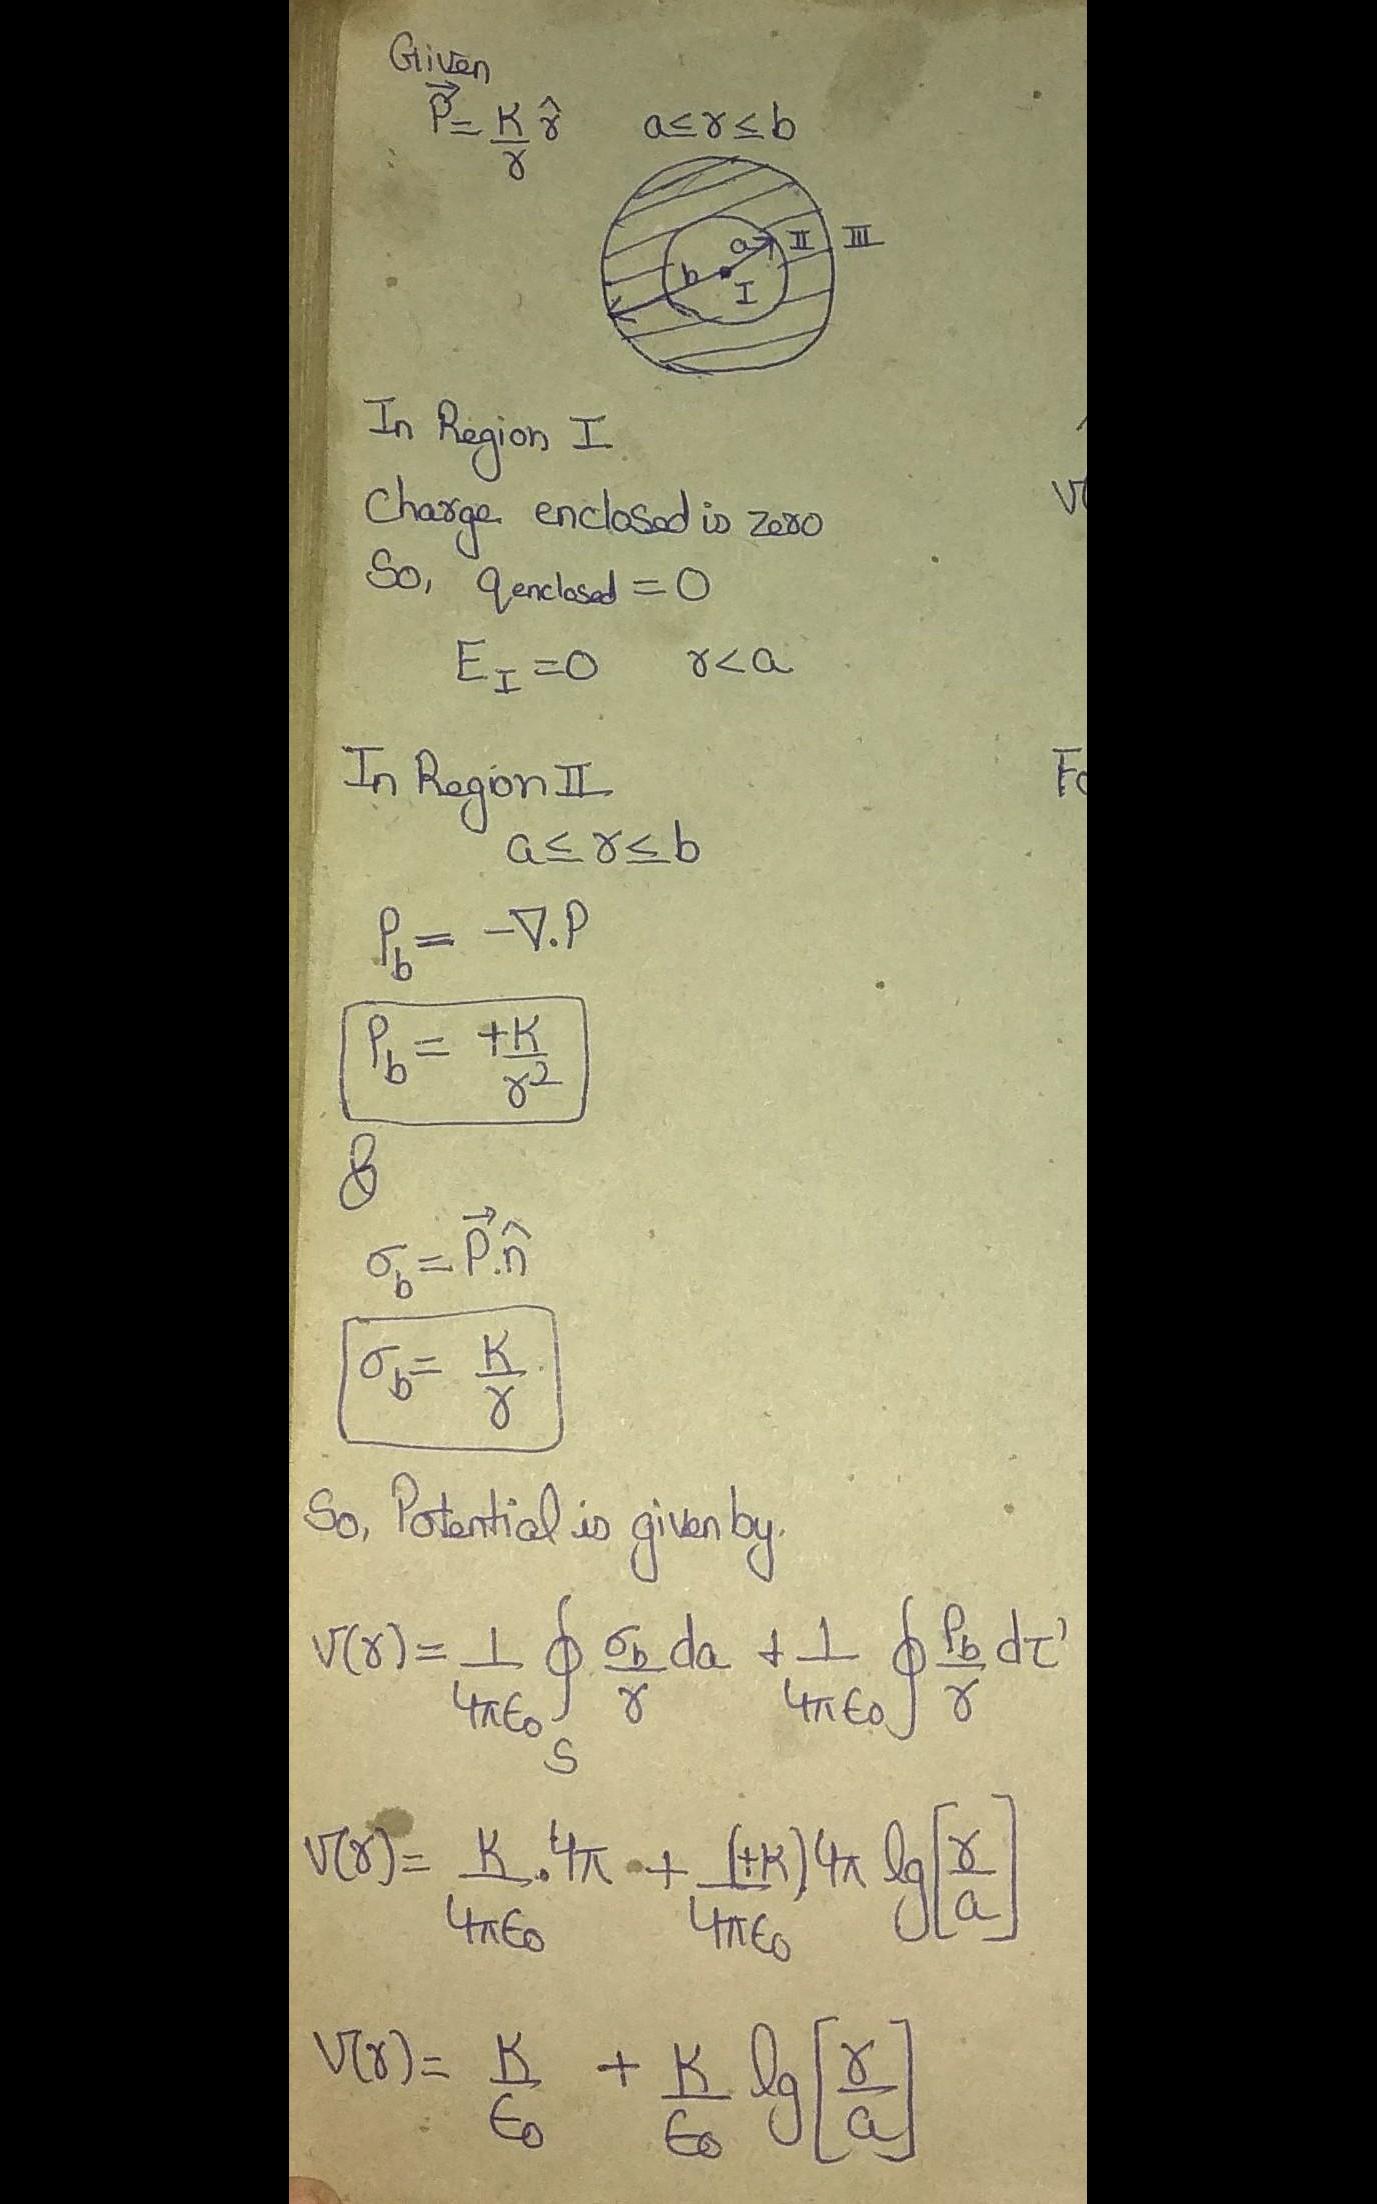 Given
P⃗ = K/r r̂    a≤r≤b
a II III
b I
In Region I
Charge enclosed is zero
So, q enclosed = 0
E_I = 0    r<a
In Region II
a≤r≤b
ρ_b = -∇.P
ρ_b = +K/r²
&
σ_b = P⃗.n̂
σ_b = K/r
So, Potential is given by.
V(r) = 1/4πϵ₀ ∮_S σ_b/r da + 1/4πϵ₀ ∮ ρ_b/r dτ'
V(r) = K/4πϵ₀ . 4π + (+K)/4πϵ₀ 4π lg[r/a]
V(r) = K/ϵ₀ + K/ϵ₀ lg[r/a]